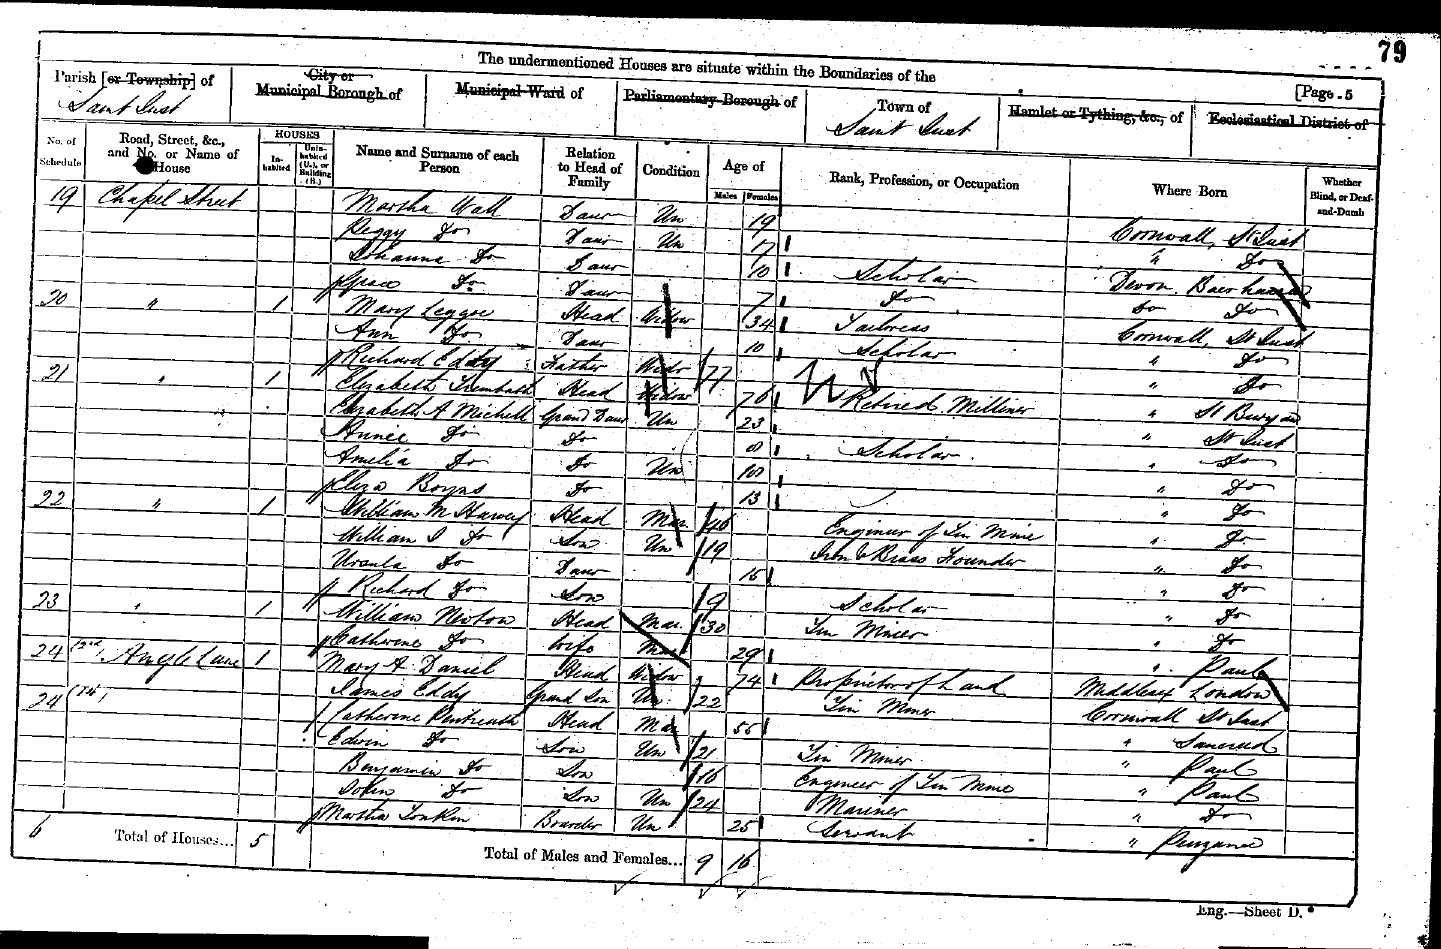 79
The undermentioned Houses are situate within the Boundaries of the
[Page 5
Parish [or Township] of
Saint Just
City or
Municipal Borough of
Municipal Ward of
Parliamentary Borough of
Town of
Saint Just
Hamlet or Tything, &c., of
Ecclesiastical District of
No. of Schedule
Road, Street, &c., and No. or Name of House
HOUSES
In-habited
Unin-habited (U.), or Building (B.)
Name and Surname of each Person
Relation to Head of Family
Condition
Age of
Males
Females
Rank, Profession, or Occupation
Where Born
Whether Blind, or Deaf-and-Dumb
19 Chapel Street Martha Wall Daur Un 19 Cornwall, St Just
Peggy Do Daur Un 17 " Do
Johanna Do Daur 10 Scholar Devon
Grace Do Daur 7 Do Do Do
20 " 1 Mary Leggo Head Widow 34 Tailoress Cornwall, St Just
Ann Do Daur 10 Scholar " Do
Richard Eddy Father Widr 77 " Do
21 " 1 Elizabeth Trembath Head Widow 76 Retired Milliner " St Buryan
Elizabeth A Michell Grand Daur Un 23 " St Just
Annie Do Do 8 Scholar " Do
Amelia Do Do Un " Do
Eliza Boyns Do 13 " Do
22 " 1 William M Harvey Head Mar 46 Engineer of Tin Mine " Do
William Do Son Un 19 Iron & Brass Founder " Do
Ursula Do Daur 15 " Do
Richard Do Son 9 Scholar " Do
23 " 1 William Newton Head Mar. 30 Tin Miner " Do
Catherine Do Wife Mar 29 " Paul
24 Angle Lane 1 Mary A Daniel Head Widow 74 Proprietor of Land Middlesex London
James Eddy Grand Son Un. 22 Tin Miner Cornwall St Just
24 Catherine Pentreath Head Mar 55 " Sancreed
Edwin Do Son Un 21 Tin Miner " Paul
Benjamin Do Son 16 Engineer of Tin Mine " Paul
John Do Son Un 24 Mariner " Do
Martha Tonkin Boarder Un 25 Servant " Penzance
6 Total of Houses... 5 Total of Males and Females... 9 16
Eng.—Sheet D.